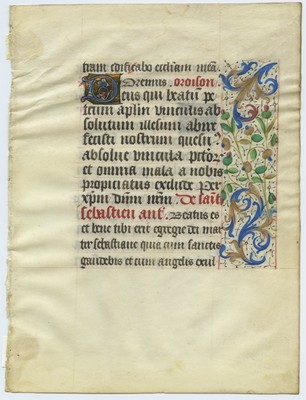 tram edificabo eccliam meã.
Oremus. oroison.
Deus qui beatũ pe
trum aplm vinculis ab
solutum illesum abire
fecisti nostrum quesu
absolue vincula pctor
et omnia mala a nobis
propiciatus exclude Per
xpm dñm nrm De saīt
sebastien ant. Beatus es
et bene tibi erit egregie dei mar
tir sebastiane quia cum sanctis
gaudebis et cum angelis exul